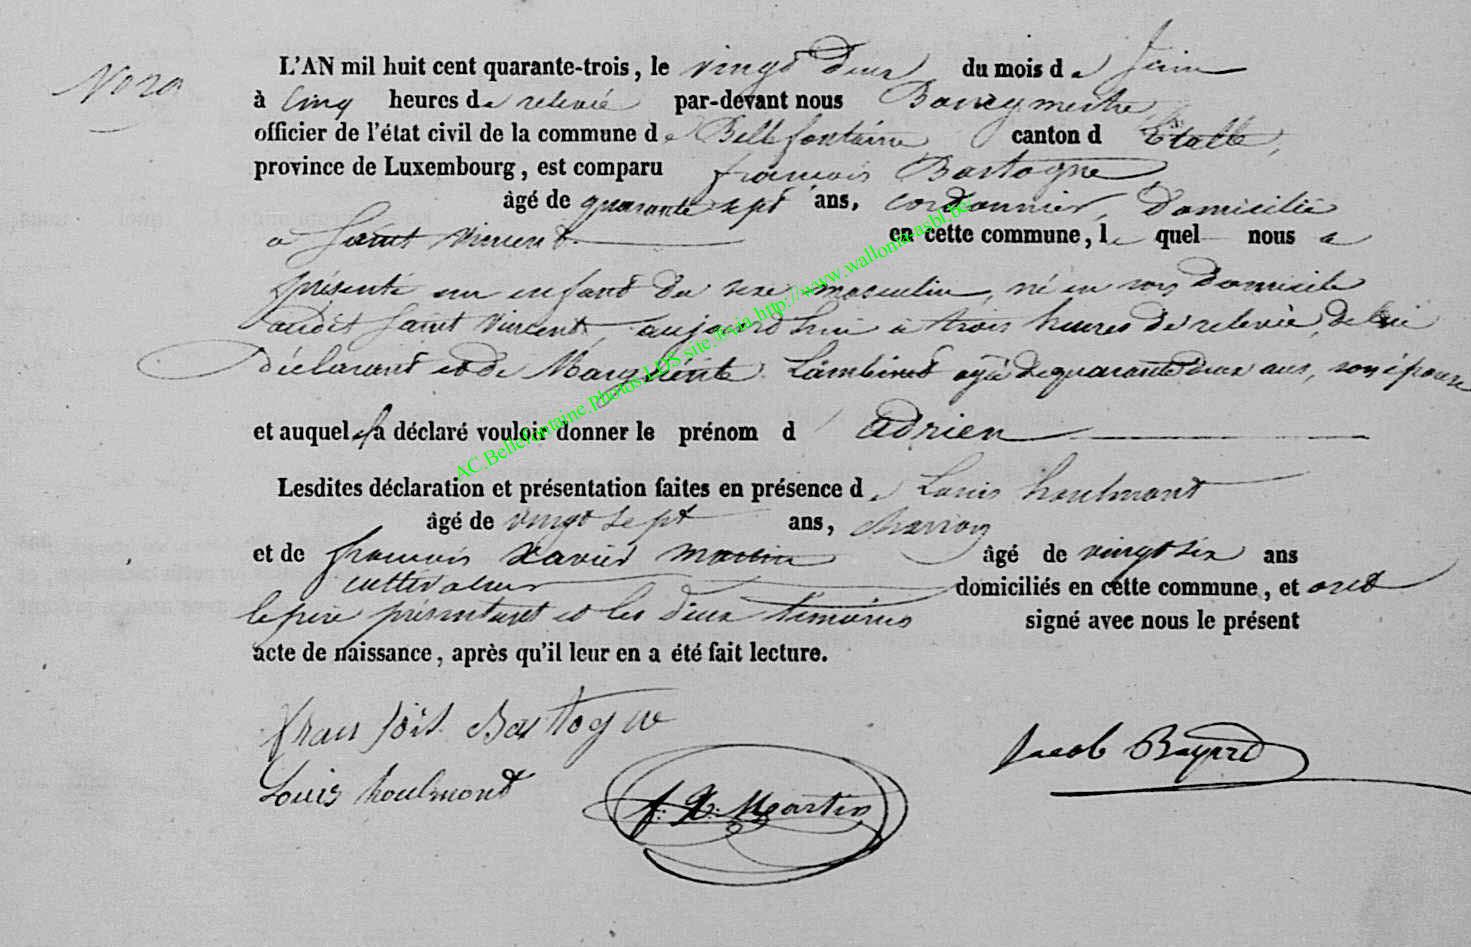 No 20
L'AN mil huit cent quarante-trois, le vingt deux du mois de Juin
à cinq heures de relevée par-devant nous Bourgmestre,
officier de l'état civil de la commune de Bellefontaine canton d Etalle,
province de Luxembourg, est comparu francois Bastogne
âgé de quarante sept ans, cordonnier, Domicilié
a Saint Vincent en cette commune, le quel nous a
présenté un enfant du sexe masculin, né en son domicile
audit Saint Vincent, aujourd'hui à trois heures de relevée, de lui
déclarant et de Marg Lambinet agée de quarante deux ans, son épouse
et auquel il a déclaré vouloir donner le prénom d adrien
Lesdites déclaration et présentation faites en présence de Louis houlmont
âgé de vingt sept ans, charron
et de francois xavier martin âgé de vingt six ans
cultivateur domiciliés en cette commune, et ont
le père présentant et les deux témoins signé avec nous le présent
acte de naissance, après qu'il leur en a été fait lecture.
fransois Bastogne
Jacob Bayard
Louis houlmont
f. X. Martin
AC.Bellefontaine.Photos.LDS site.I via http://www.wallonia-asbl.be/